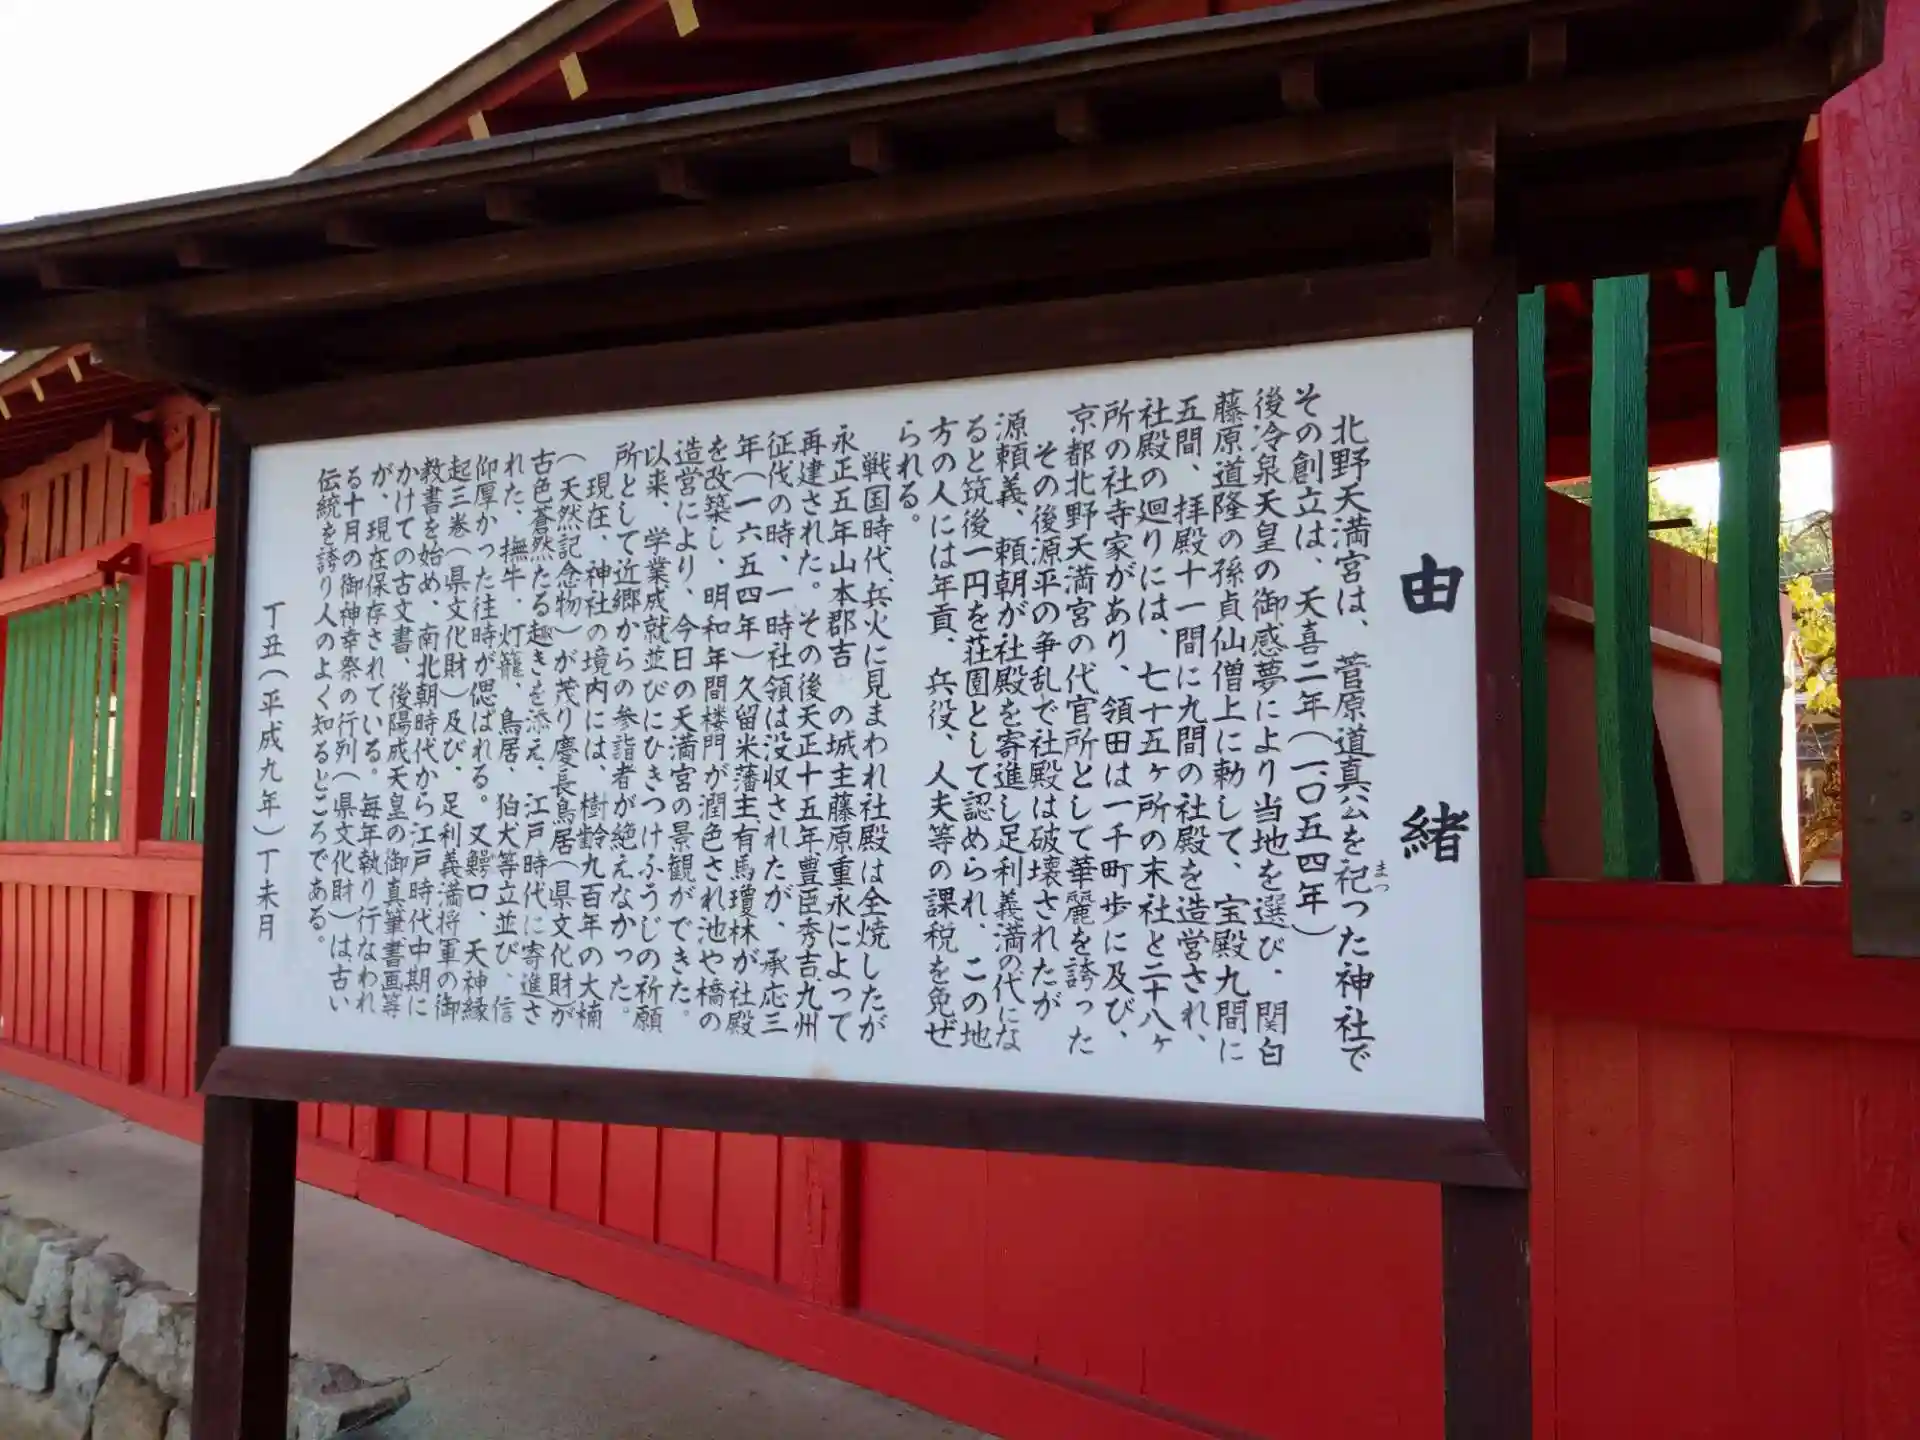 由緒
北野天満宮は、菅原道真公を祀った神社で
まつ
その創立は、天喜二年(一、〇五四年)
後冷泉天皇の御感夢により当地を選び、関白
藤原道隆の孫貞仙僧上に勅して、宝殿九間に
五間、拝殿十一間に九間の社殿を造営され、
社殿の廻りには、七十五ヶ所の末社と二十八ヶ
所の社寺家があり、領田は一千町歩に及び、
京都北野天満宮の代官所として華麗を誇った
その後源平の争乱で社殿は破壊されたが
源頼義、頼朝が社殿を寄進し足利義満の代にな
ると筑後一円を荘園として認められ、この地
方の人には年貢、兵役、人夫等の課税を免ぜ
られる。
戦国時代、兵火に見まわれ社殿は全焼したが
永正五年山本郡吉 の城主藤原重永によって
再建された。その後天正十五年豊臣秀吉、九州
征伐の時、一時社領は没収されたが、承応三
年(一六五四年)久留米藩主、有馬瓊林が社殿
を改築し、明和年間楼門が潤色され池や橋の
造営により、今日の天満宮の景観ができた。
以来、学業成就並びにひきつけふうじの祈願
所として近郷からの参詣者が絶えなかった。
現在、神社の境内には、樹齢九百年の大楠
(天然記念物)が茂り慶長鳥居(県文化財)が
古色蒼然たる趣きを添え、江戸時代に寄進さ
れた、撫牛、灯籠、鳥居、狛犬等立並び、信
仰厚かった往時が偲ばれる。又鰐口、天神縁
起三巻(県文化財)及び、足利義満将軍の御
教書を始め、南北朝時代から江戸時代中期に
かけての古文書、後陽成天皇の御真筆、書画等
が、現在保存されている。毎年執り行なわれ
る十月の御神幸祭の行列(県文化財)は、古い
伝統を誇り人のよく知るところである。
丁丑(平成九年)丁未月